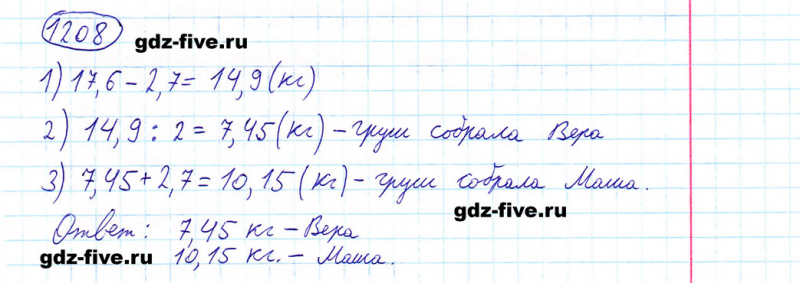 1208
gdz-five.ru
1) 17,6 - 2,7 = 14,9 (кг)
2) 14,9 : 2 = 7,45 (кг) - груш собрала Вера
3) 7,45 + 2,7 = 10,15 (кг) - груш собрала Маша.
gdz-five.ru
Ответ: 7,45 кг - Вера
gdz-five.ru 10,15 кг. - Маша.